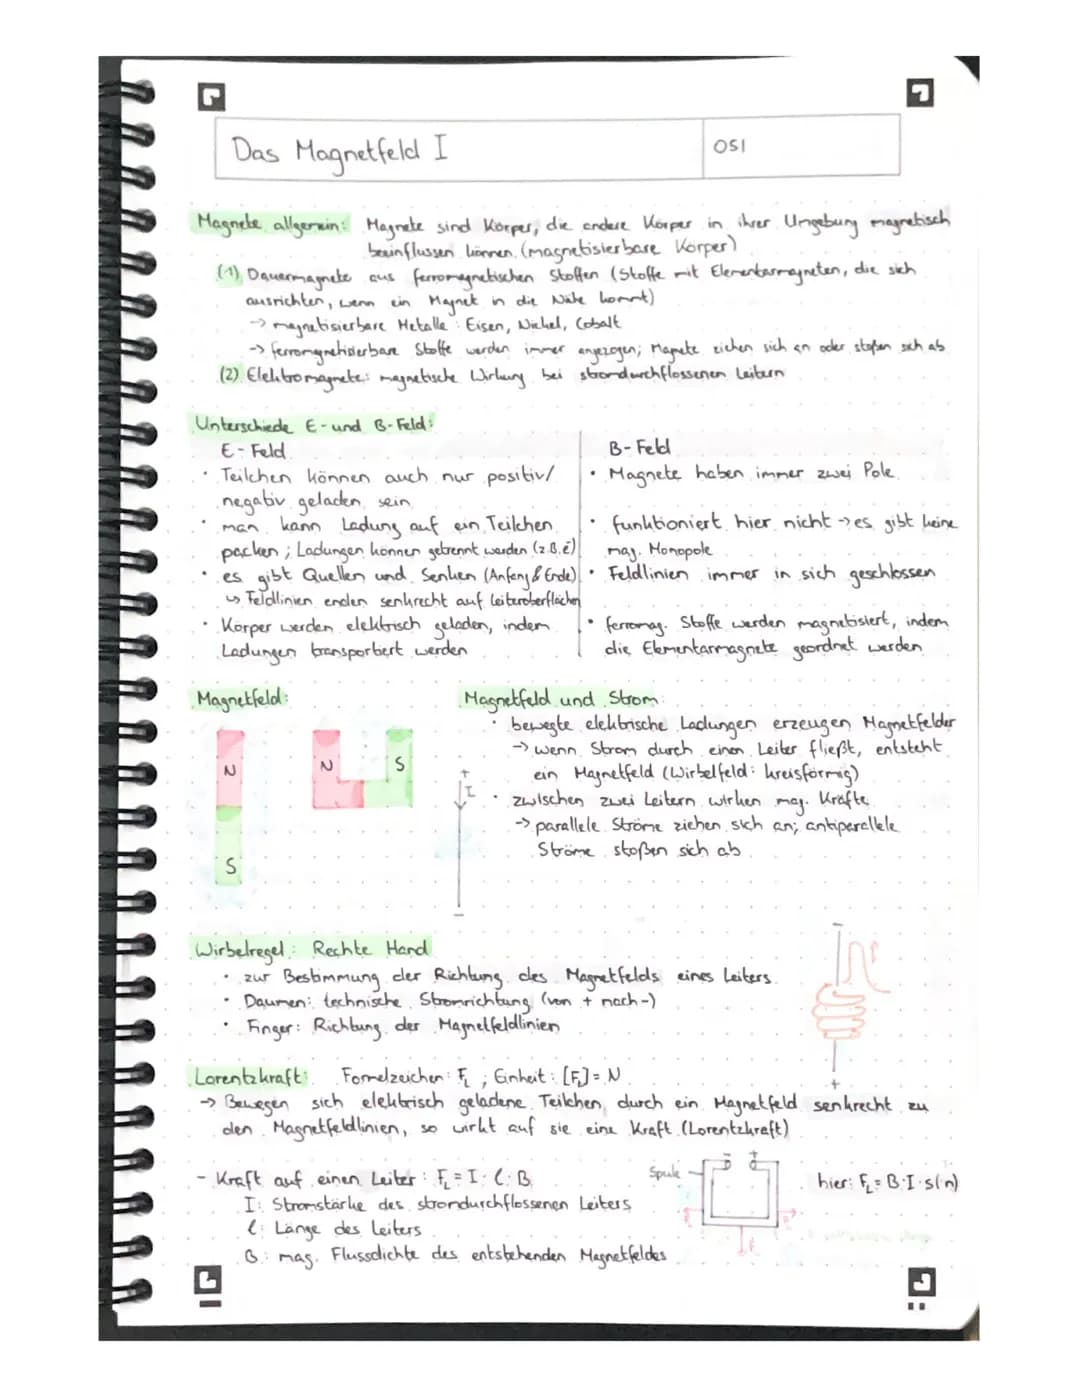 Das Magnetfeld I
OSI
Magnete allgemein: Magnete sind Körper, die andere Körper in ihrer Umgebung magnetisch
beeinflussen können. (magnetisierbare Körper)
(1) Dauermagnete aus ferromagnetischen Stoffen (Stoffe mit Elementarmagneten, die sich
ausrichten, wenn ein Magnet in die Nähe kommt)
-> magnetisierbare Metalle: Eisen, Nickel, Cobalt
-> ferromagnetisierbare Stoffe werden immer angezogen; Magnete ziehen sich an oder stoßen sich ab
(2) Elektromagnete: magnetische Wirkung bei stromdurchflossenen Leitern
Unterschiede E- und B-Feld:
E-Feld
• Teilchen können auch nur positiv/
negativ geladen sein
• man kann Ladung auf ein Teilchen
packen; Ladungen können getrennt werden (z.B. e⁻)
• es gibt Quellen und Senken (Anfang & Ende)
↳ Feldlinien enden senkrecht auf Leiteroberflächen
• Körper werden elektrisch geladen, indem
Ladungen transportiert werden
B-Feld
• Magnete haben immer zwei Pole
• funktioniert hier nicht -> es gibt keine
mag. Monopole
• Feldlinien immer in sich geschlossen
• ferromag. Stoffe werden magnetisiert, indem
die Elementarmagnete geordnet werden
Magnetfeld:
N
S
N S
Magnetfeld und Strom:
• bewegte elektrische Ladungen erzeugen Magnetfelder
-> wenn Strom durch einen Leiter fließt, entsteht
ein Magnetfeld (Wirbelfeld: kreisförmig)
• zwischen zwei Leitern wirken mag. Kräfte
-> parallele Ströme ziehen sich an; antiparallele
Ströme stoßen sich ab
+
I
-
Wirbelregel: Rechte Hand
• zur Bestimmung der Richtung des Magnetfelds eines Leiters
• Daumen: technische Stromrichtung (von + nach -)
• Finger: Richtung der Magnetfeldlinien
-
+
Lorentzkraft: Formelzeichen: F_L ; Einheit: [F_L] = N
-> Bewegen sich elektrisch geladene Teilchen durch ein Magnetfeld senkrecht zu
den Magnetfeldlinien, so wirkt auf sie eine Kraft (Lorentzkraft)
- Kraft auf einen Leiter: F_L = I · l · B
I: Stromstärke des stromdurchflossenen Leiters
l: Länge des Leiters
B: mag. Flussdichte des entstehenden Magnetfeldes
Spule
- +
hier: F_L = B·I·s(n)